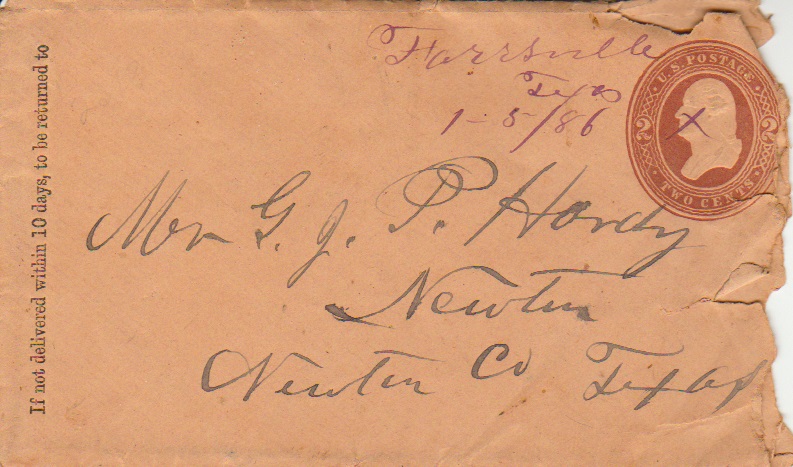 If not delivered within 10 days, to be returned to
Farrsville
Texas
1-5/86
U.S. POSTAGE
2 X 2
TWO CENTS
Mr G. J. P. Hardy
Newton
Newton Co Texas